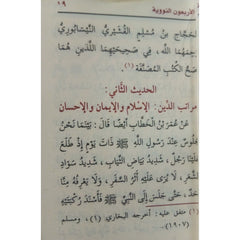 الأربعون النووية ١٩
لحجاج بن مُسْلِمٍ القُشَيْرِيُّ النَّيْسَابُورِيُّ
حِمَهُمَا اللَّهُ، فِي صَحِيحَيْهِمَا اللَّذَيْنِ هُمَا
صَحُّ الكُتُبِ المُصَنَّفَةِ (١).
الحديث الثاني:
مراتب الدين: الإسلام والإيمان والإحسان
عَنْ عُمَرَ بْنِ الْخَطَّابِ أَيْضًا قَالَ: بَيْنَمَا نَحْنُ
جُلُوسٌ عِنْدَ رَسُولِ اللَّهِ ﷺ ذَاتَ يَوْمٍ إِذْ طَلَعَ
عَلَيْنَا رَجُلٌ، شَدِيدُ بَيَاضِ الثِّيَابِ، شَدِيدُ سَوَادِ
لَا يُرَى عَلَيْهِ أَثَرُ السَّفَرِ، وَلَا يَعْرِفُهُ
حَدٌ، حَتَّى جَلَسَ إِلَى النَّبِيِّ ﷺ فَأَسْنَدَ رُكْبَتَيْهِ
(١) متفق عليه: أخرجه البخاري (١)، ومسلم
(١٩٠٧).